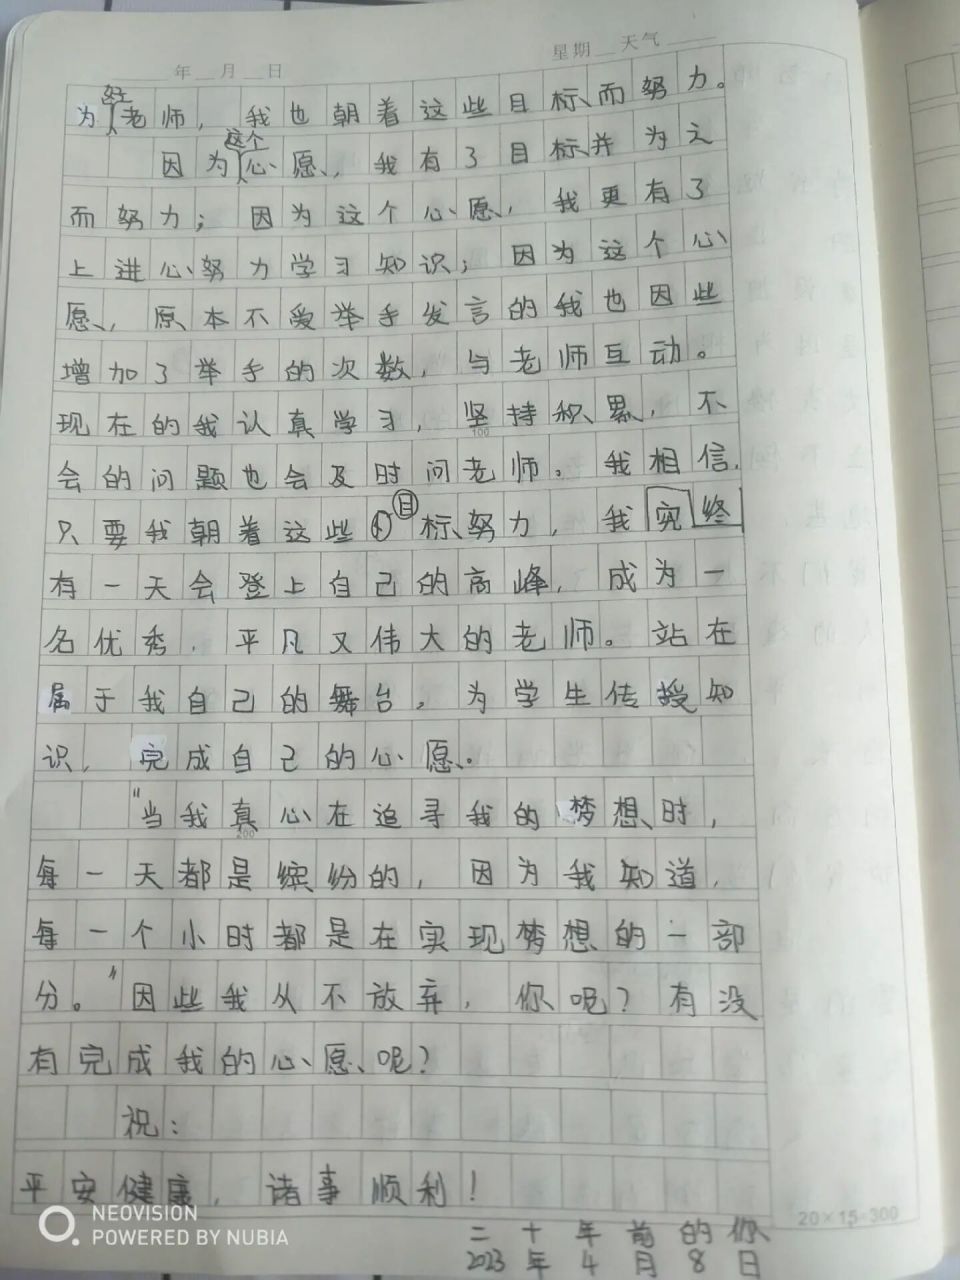 年 月 日
星期 天气
为好老师，我也朝着这些目标而努力。
因为这个心愿，我有了目标并为之
而努力；因为这个心愿，我更有了
上进心努力学习知识；因为这个心
愿，原本不爱举手发言的我也因些
增加了举手的次数，与老师互动。
现在的我认真学习，坚持积累，不
100
会的问题也会及时问老师。我相信，
只要我朝着这些目标努力，我究终
有一天会登上自己的高峰，成为一
名优秀，平凡又伟大的老师。站在
属于我自己的舞台，为学生传授知
识，完成自己的心愿。
"当我真心在追寻我的梦想时，
200
每一天都是缤纷的，因为我知道，
每一个小时都是在实现梦想的一部
分。"因些我从不放弃，你呢？有没
有完成我的心愿呢？
祝：
平安健康，诸事顺利！
20×15=300
二十年前的你
2023年4月8日
NEOVISION
POWERED BY NUBIA